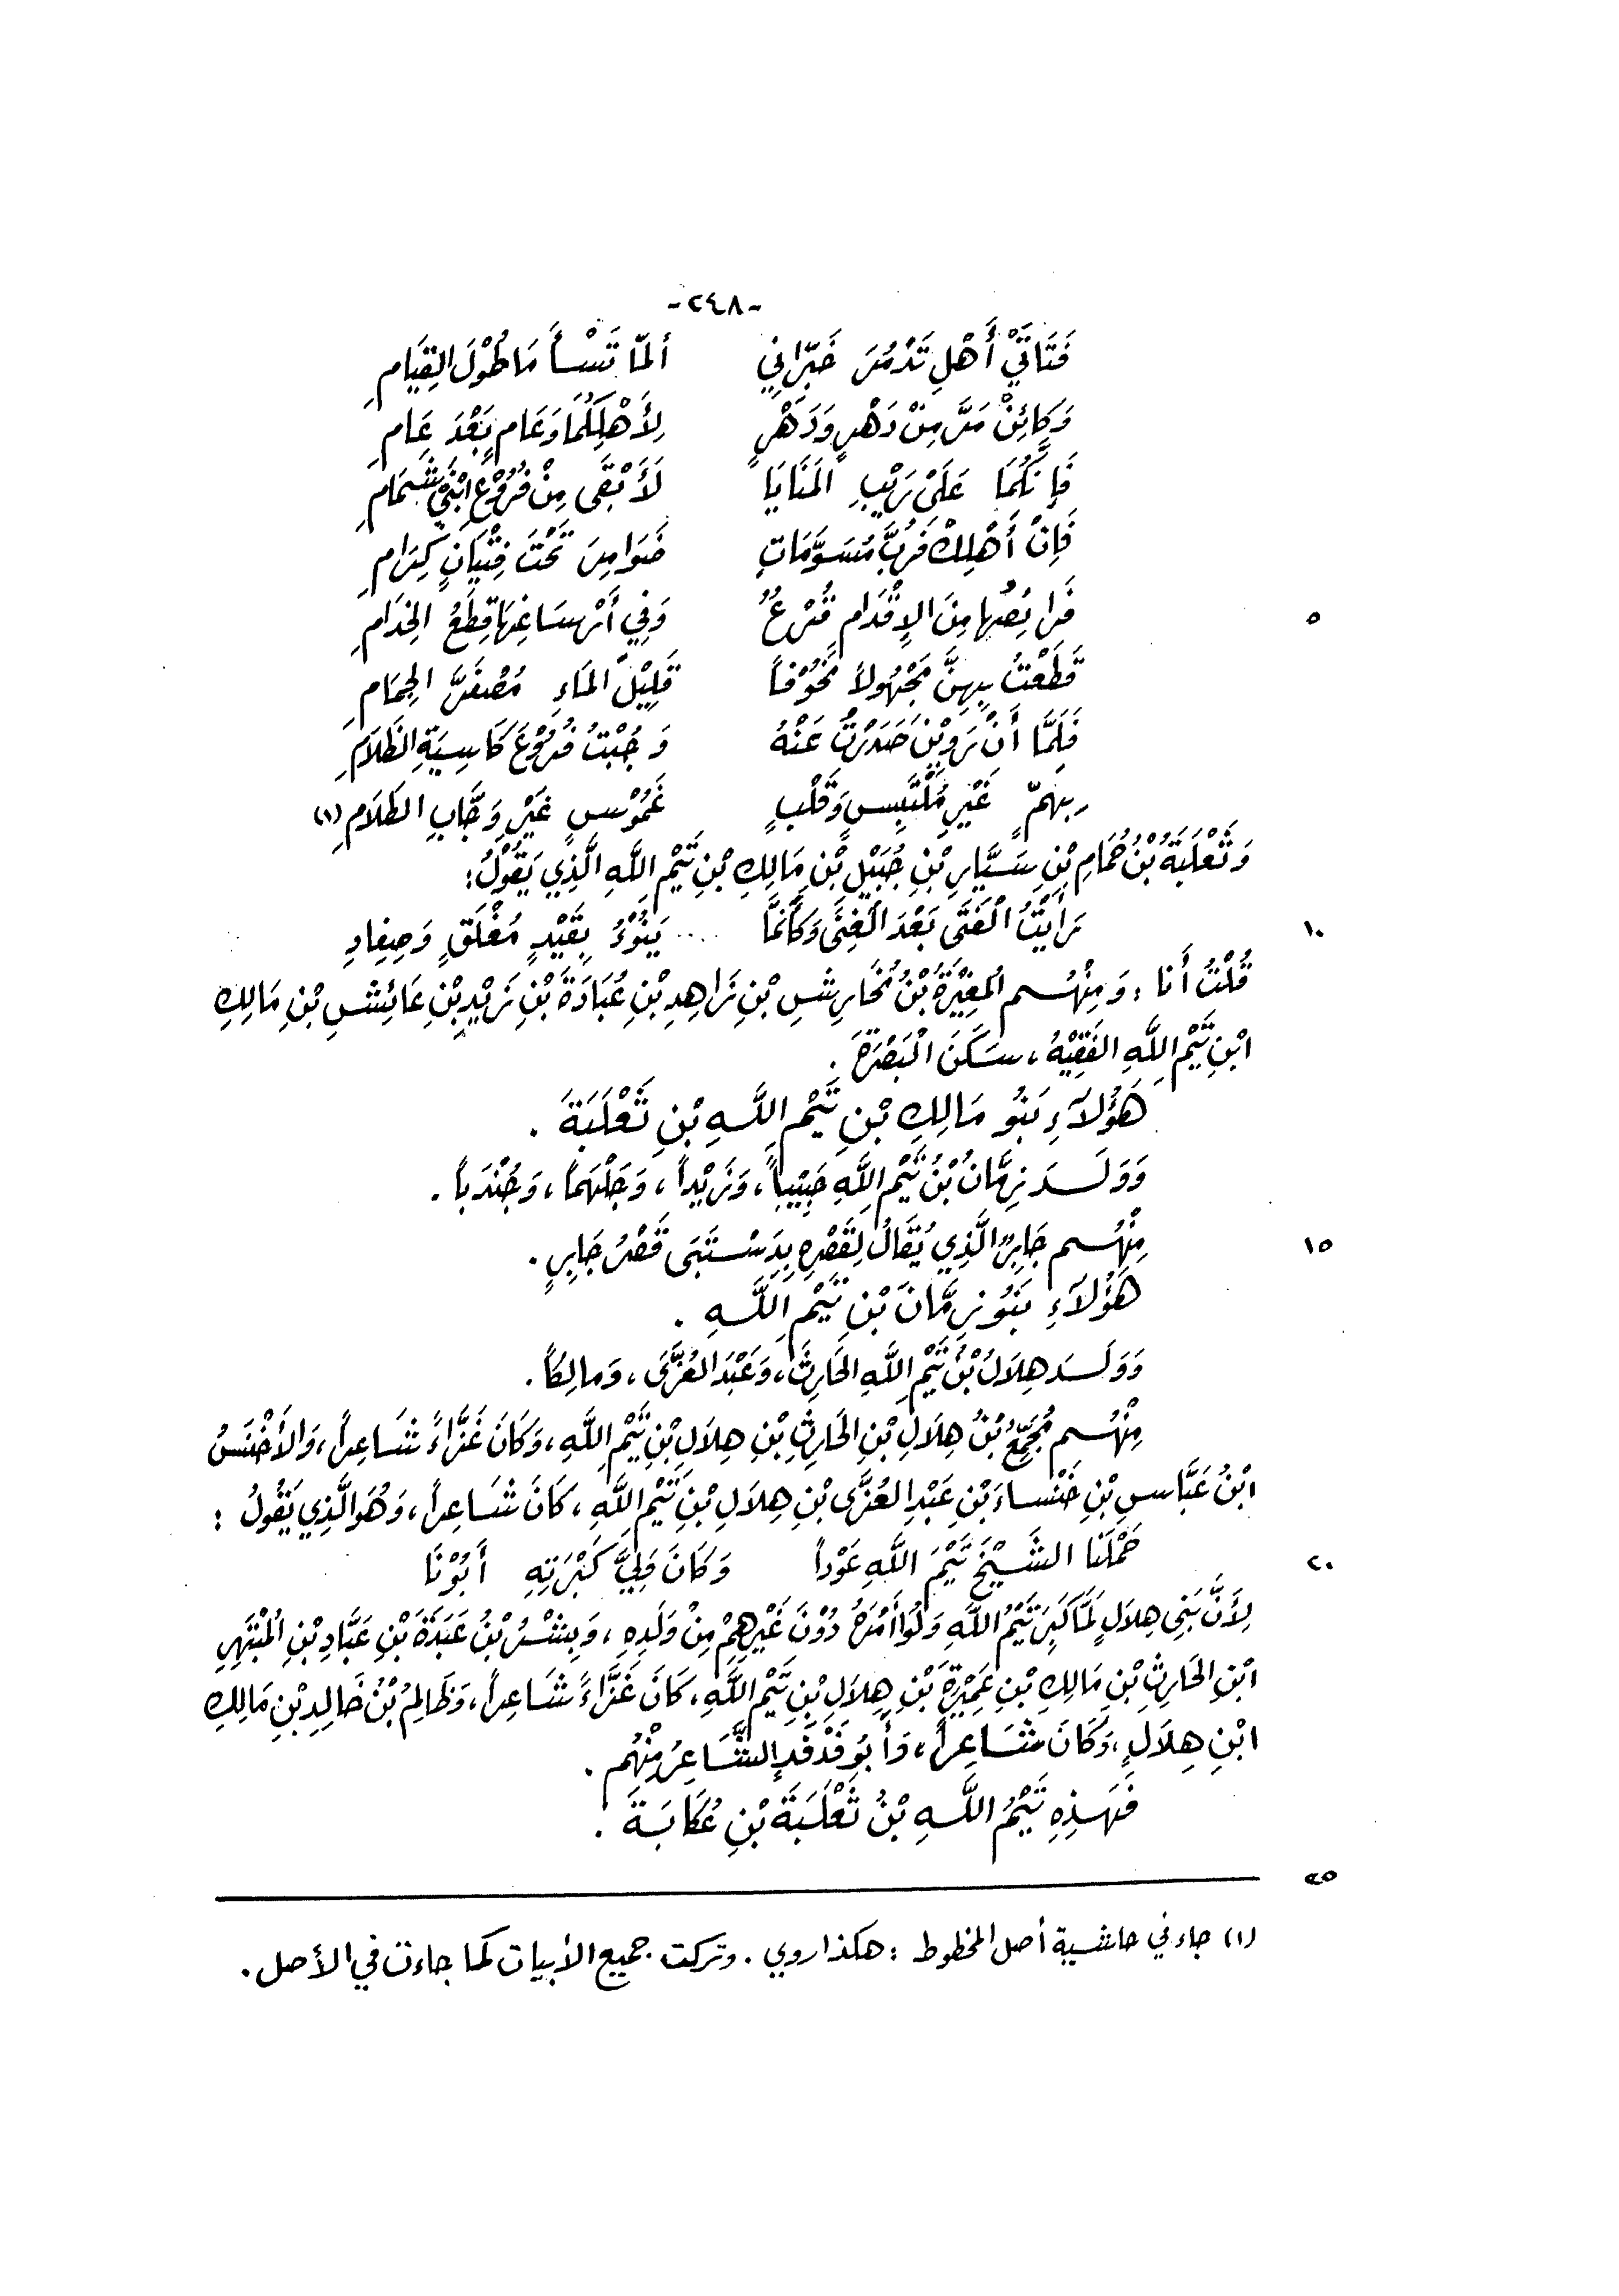 -٢٤٨-
فَتَاتَيْ أَهْلِ تَدْمُرَ خَبِّرَانِي أَلَمَّا تَسْأَمَا طُوْلَ القِيَامِ
وَكَائِنْ مَرَّ مِنْ دَهْرٍ وَدَهْرٍ لِأَهْلِكُمَا وَعَامٍ بَعْدَ عَامِ
فَإِنَّكُمَا عَلَى رَيْبِ المَنَايَا لَأَبْقَى مِنْ فُرُوْعِ ابْنَيْ شَمَامِ
فَإِنْ أَهْلِكْ فَرُبَّ مُسَوَّمَاتٍ ضَوَامِرَ تَحْتَ فِتْيَانٍ كِرَامِ
٥
فَرائِصُها مِنَ الإِقْدَامِ قُرْعٌ وَفِي أَرْسَاغِهَا قِطَعُ الخِدَامِ
قَطَعْتُ بِهِنَّ مَجْهُولاً مَخُوْفاً قَلِيْلَ المَاءِ مُصْفَرَّ الجِمَامِ
فَلَمَّا أَنْ رَوِيْنَ صَدَرْتُ عَنْهُ وَجُبْتُ فُرُوْعَ كَاسِيَةِ الظَلَامِ
بِهَمٍّ غَيْرِ مُلْتَبِسٍ وَقَلْبٍ غَمُوْسٍ غَيْرِ وَجَّابِ الظَلَامِ (١)
وَثَعْلَبَةُ بْنُ حُمَامِ بْنِ سَيَّارِ بْنِ جُبَيْلِ بْنِ مَالِكِ بْنِ تَيْمِ اللَّهِ الَّذِي يَقُوْلُ:
١٠
رَأَيْتُ الْفَتَى بَعْدَ الْغِنَى وَكَأَنَّمَا .... يَنُوْءُ بِقَيْدٍ مُغْلَقٍ وَصِفَادِ
قُلْتُ أَنا: وَمِنْهُم المُغِيْرَةُ بْنُ مُخَارِشِ بْنِ زَاهِدِ بْنِ عُبَادَةَ بْنِ زَيْدِ بْنِ عَائِشِ بْنِ مَالِكِ
ابْنِ تَيْمِ اللَّهِ الفَقِيْهُ، سَكَنَ الْبَصْرَةَ.
هَؤُلَاءِ بَنُو مَالِكِ بْنِ تَيْمِ اللَّهِ بْنِ ثَعْلَبَةَ.
وَوَلَدَ زِمَّانُ بْنُ تَيْمِ اللَّهِ حَبِيْباً، وَزَيْداً، وَجَلْهَماً، وَجُنْدَباً.
١٥
مِنْهُم جَابِرٌ الَّذِي يُقَالُ لِقَصْرِهِ بِدَسْتَبَى قَصْرُ جَابِرٍ.
هَؤُلَاءِ بَنُو زِمَّانَ بْنِ تَيْمِ اللَّهِ.
وَوَلَدَ هِلَالُ بْنُ تَيْمِ اللَّهِ الحَارِثَ، وَعَبْدَ العُزَّى، وَمالِكاً.
مِنْهُم مُجَمِّعُ بْنُ هِلَالِ بْنِ الحَارِثِ بْنِ هِلَالِ بْنِ تَيْمِ اللَّهِ، وَكَانَ غَزَّاءً شَاعِراً، وَالأَخْنَسُ
ابْنُ عَبَّاسِ بْنِ خَنْساءَ بْنِ عَبْدِ العُزَّى بْنِ هِلَالِ بْنِ تَيْمِ اللَّهِ، كَانَ شَاعِراً، وَهُوَ الَّذِي يَقُولُ:
٢٠
حَمَلْنَا الشَّيْخَ تَيْمَ اللَّهِ عَوْداً وَكَانَ وَلِيَّ كَبْرَتِهِ أَبُوْنَا
لِأَنَّ بَنِي هِلَالٍ لَمَّا كَبِرَ تَيْمُ اللَّهِ وَلُوا أَمْرَهُ دُوْنَ غَيْرِهِمْ مِنْ وَلَدِهِ، وَبِشْرُ بْنُ عَبَدَةَ بْنِ عَبَّادِ بْنِ المُبْتَهِرِ
ابْنِ الحَارِثِ بْنِ مَالِكِ بْنِ عَمِيْرَةَ بْنِ هِلَالِ بْنِ تَيْمِ اللَّهِ، كَانَ غَزَّاءً شَاعِراً، وَظَالِمُ بْنُ خَالِدِ بْنِ مَالِكِ
ابْنِ هِلَالٍ، وَكَانَ شَاعِراً، وَأَبُو فَدْفَدٍ الشَّاعِرُ مِنْهُم.
فَهَذِهِ تَيْمُ اللَّهِ بْنُ ثَعْلَبَةَ بْنِ عُكَابَةَ.
٢٥
(١) جاء في حاشية أصل المخطوط: هكذا روي. وتركت جميع الأبيات كما جاءت في الأصل.